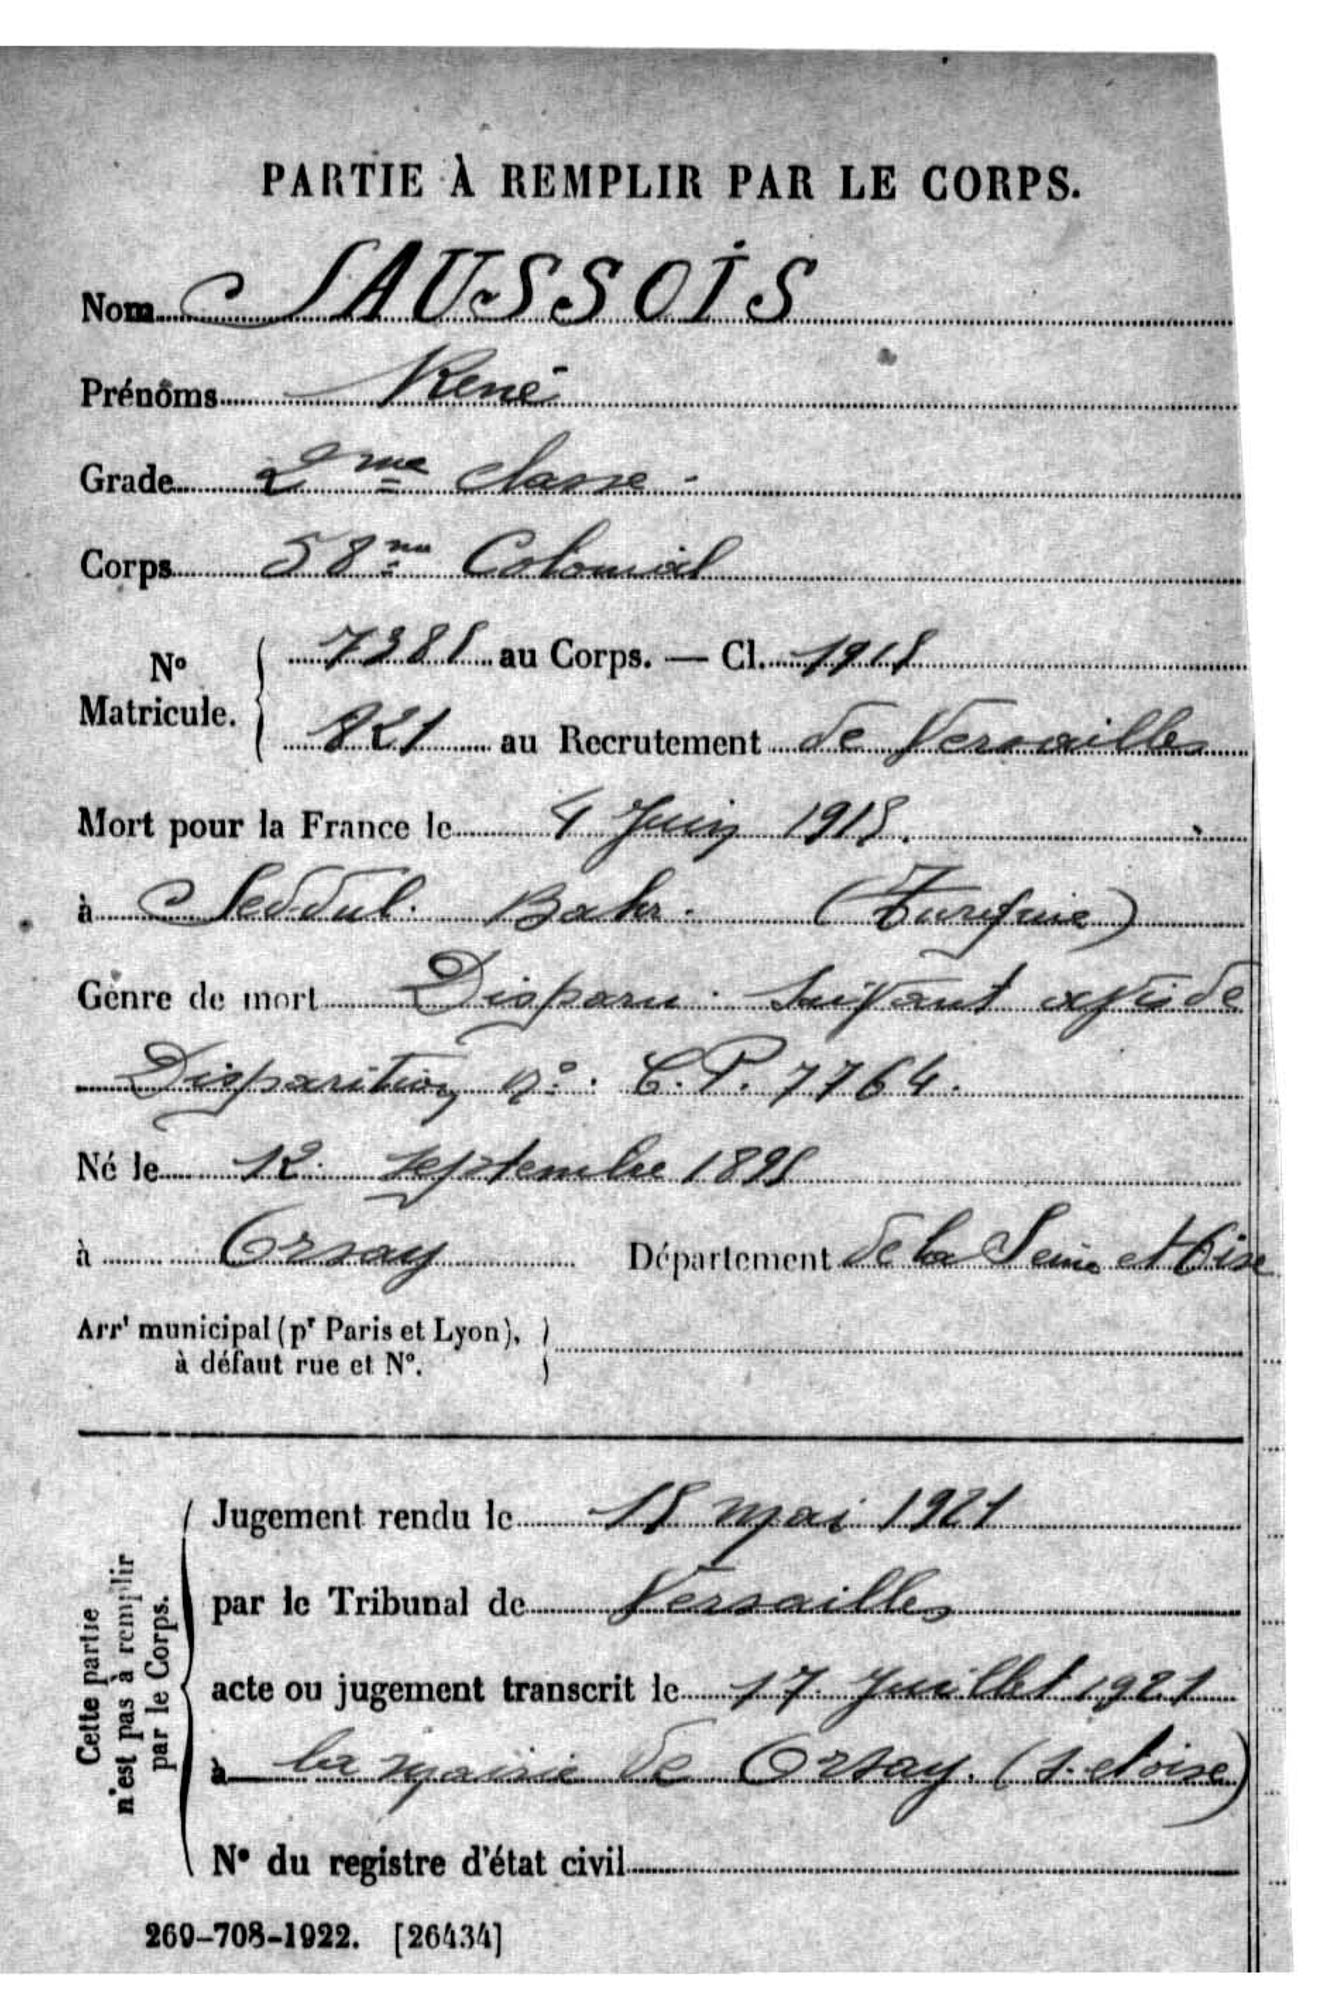 PARTIE À REMPLIR PAR LE CORPS.
Nom SAUSSOIS
Prénoms René
Grade 2me classe -
Corps 58me Colonial
No Matricule. 7385 au Corps. — Cl. 1915
821 au Recrutement de Versailles
Mort pour la France le 4 Juin 1915.
à Seddul. Bahr. (Turquie)
Genre de mort Disparu. Suivant avis de
Disparition no. C.P. 7764.
Né le 12 septembre 1895
à Orsay Département de la Seine et Oise
Arrt municipal (pr Paris et Lyon),
à défaut rue et No.
Cette partie
n'est pas à remplir
par le Corps.
Jugement rendu le 18 mai 1921
par le Tribunal de Versailles
acte ou jugement transcrit le 17 Juillet 1921
à la mairie de Orsay. (S. et oise)
No du registre d'état civil
260-708-1922. [26434]